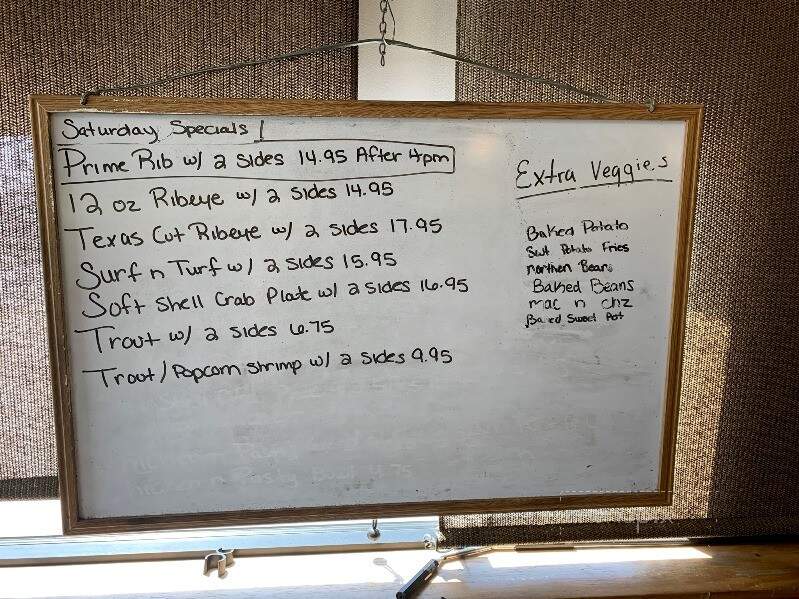 Saturday Specials!
Prime Rib w/ 2 sides 14.95 After 4pm
12 oz Ribeye w/ 2 sides 14.95
Texas Cut Ribeye w/ 2 sides 17.95
Surf n Turf w/ 2 sides 15.95
Soft Shell Crab Plate w/ 2 sides 16.95
Trout w/ 2 sides 6.75
Trout/Popcorn shrimp w/ 2 sides 9.95
Extra Veggies
Baked Potato
Swt Potato Fries
northen Beans
Baked Beans
mac n chz
Ba ed Sweet Pot